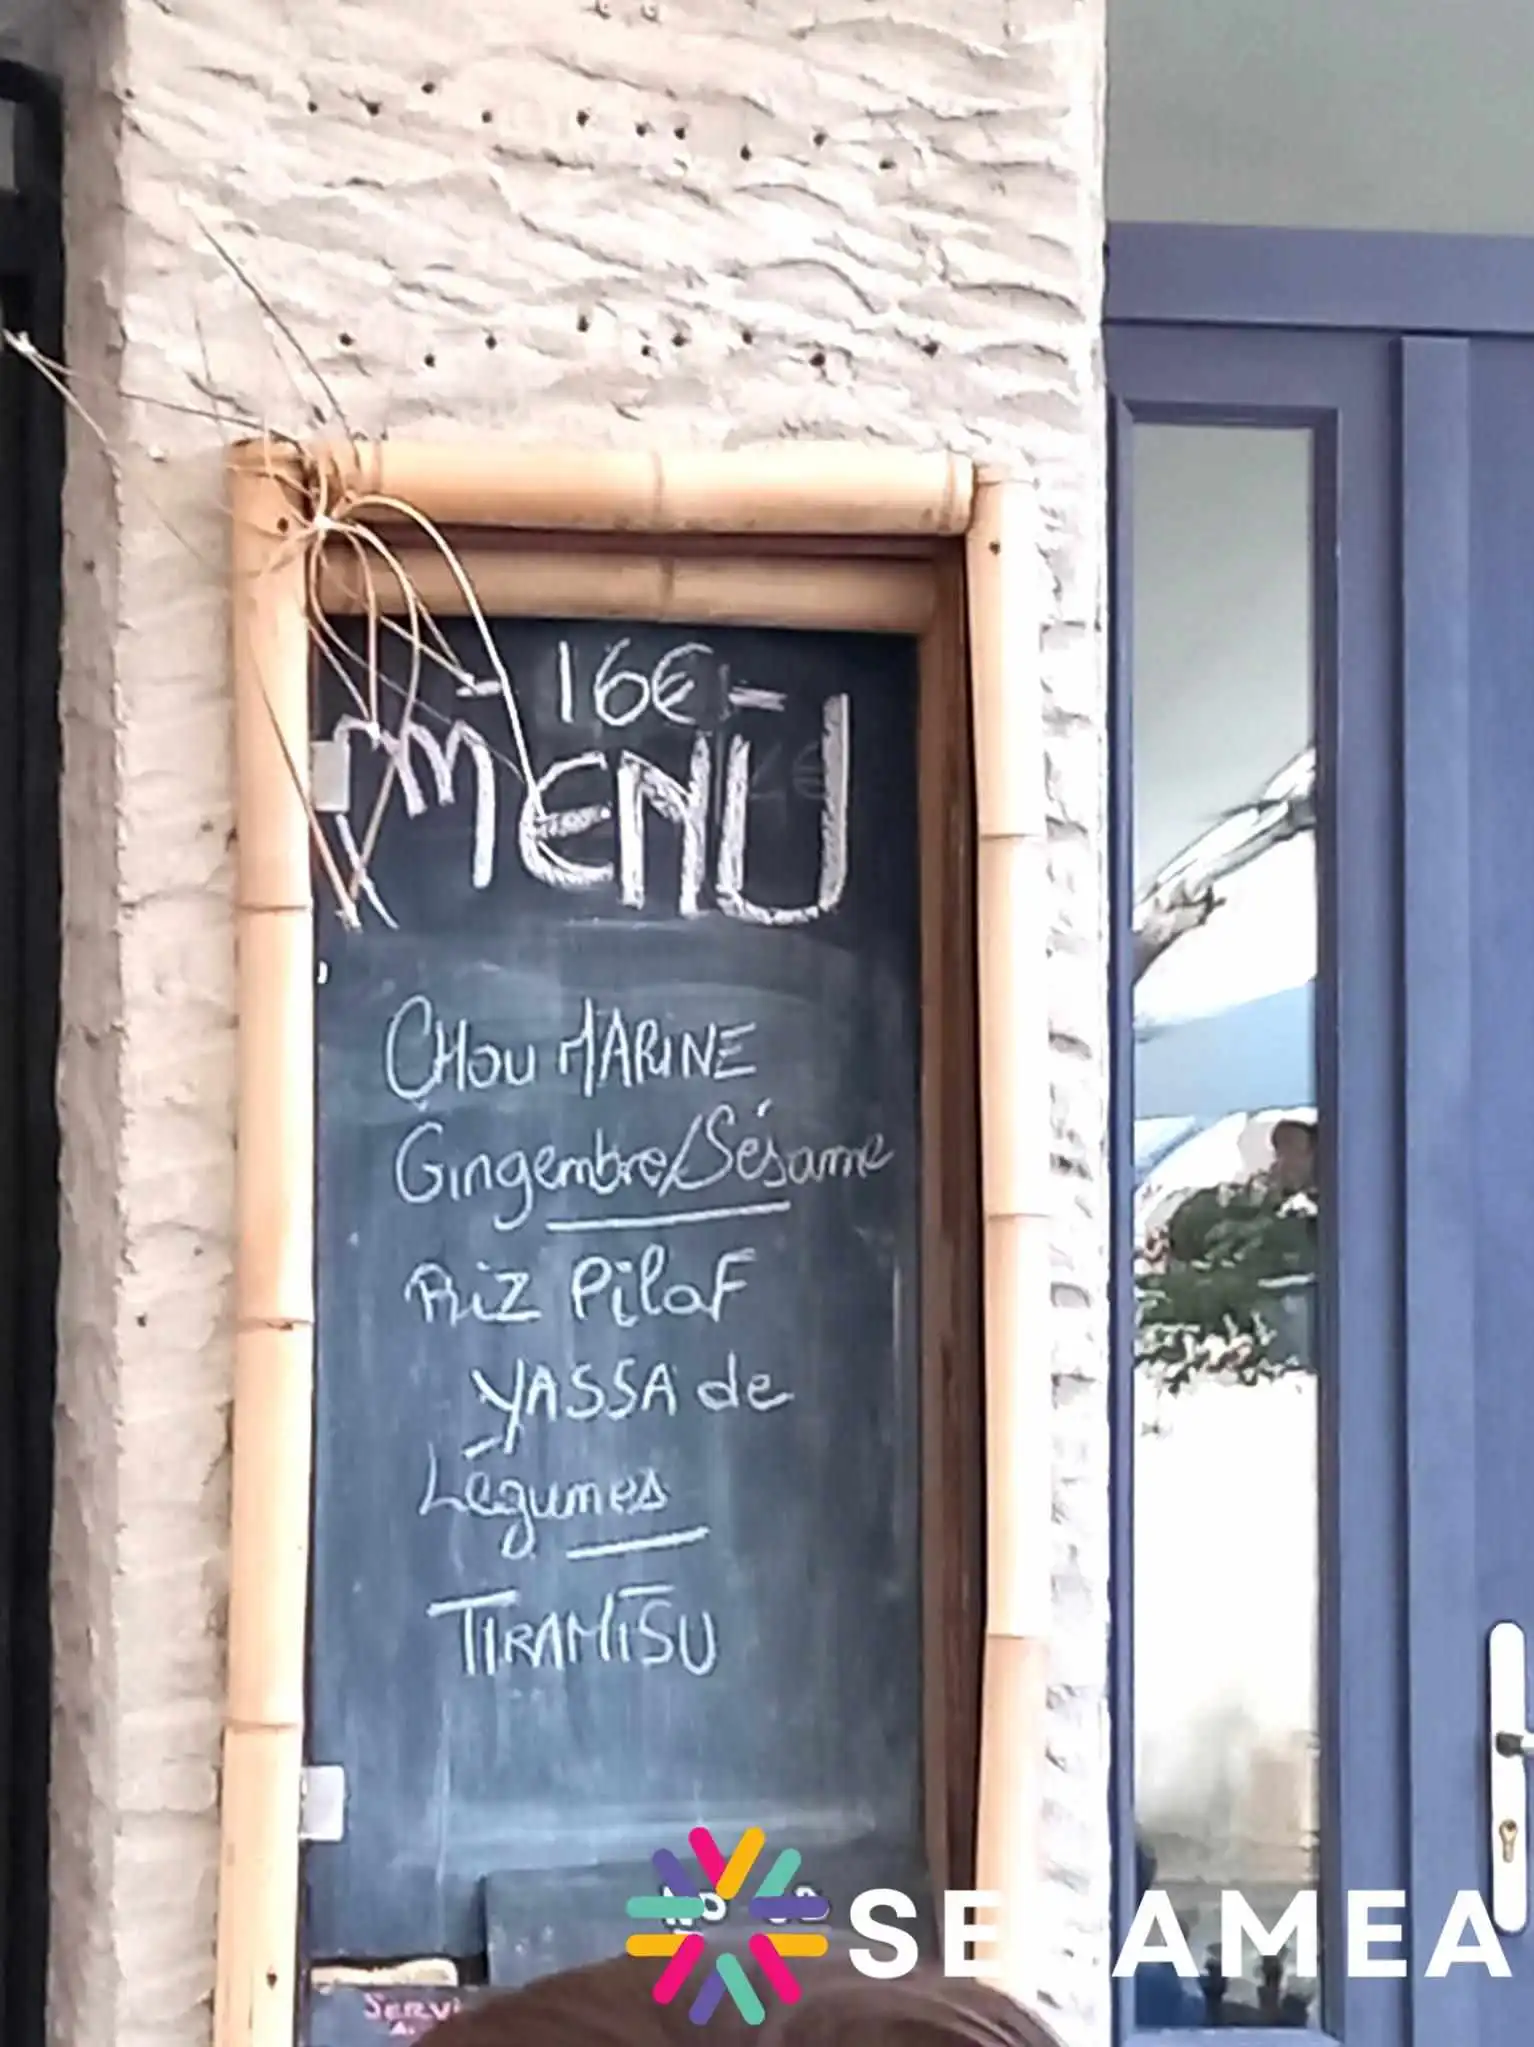 - 16€ -
MENU
CHOU MARINE
Gingembre/Sésame
Riz Pilaf
YASSA de
Légumes
TIRAMISU
SERVI